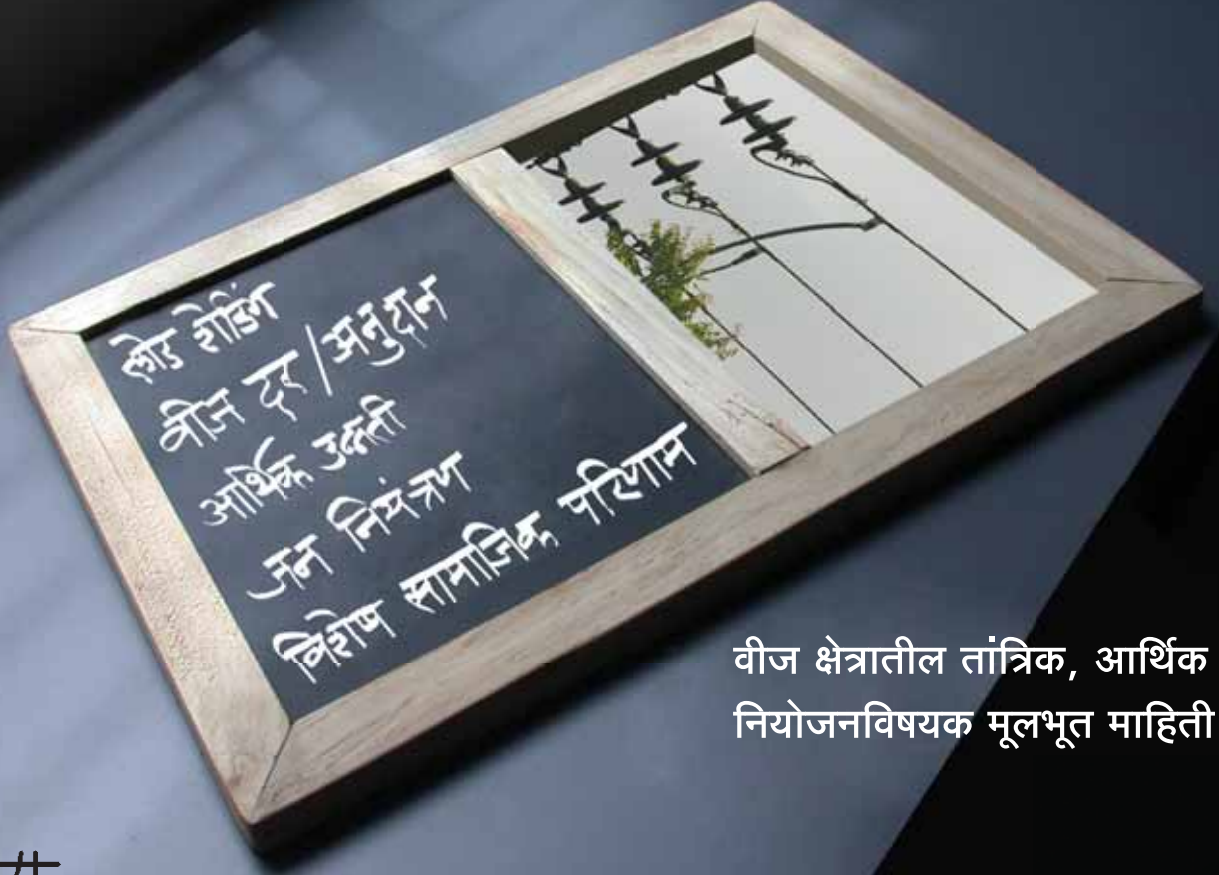 लोड शेडिंग
वीज दर/अनुदान
आर्थिक उन्नती
जन नियंत्रण
विशेष सामाजिक परिणाम
वीज क्षेत्रातील तांत्रिक, आर्थिक
नियोजनविषयक मूलभूत माहिती